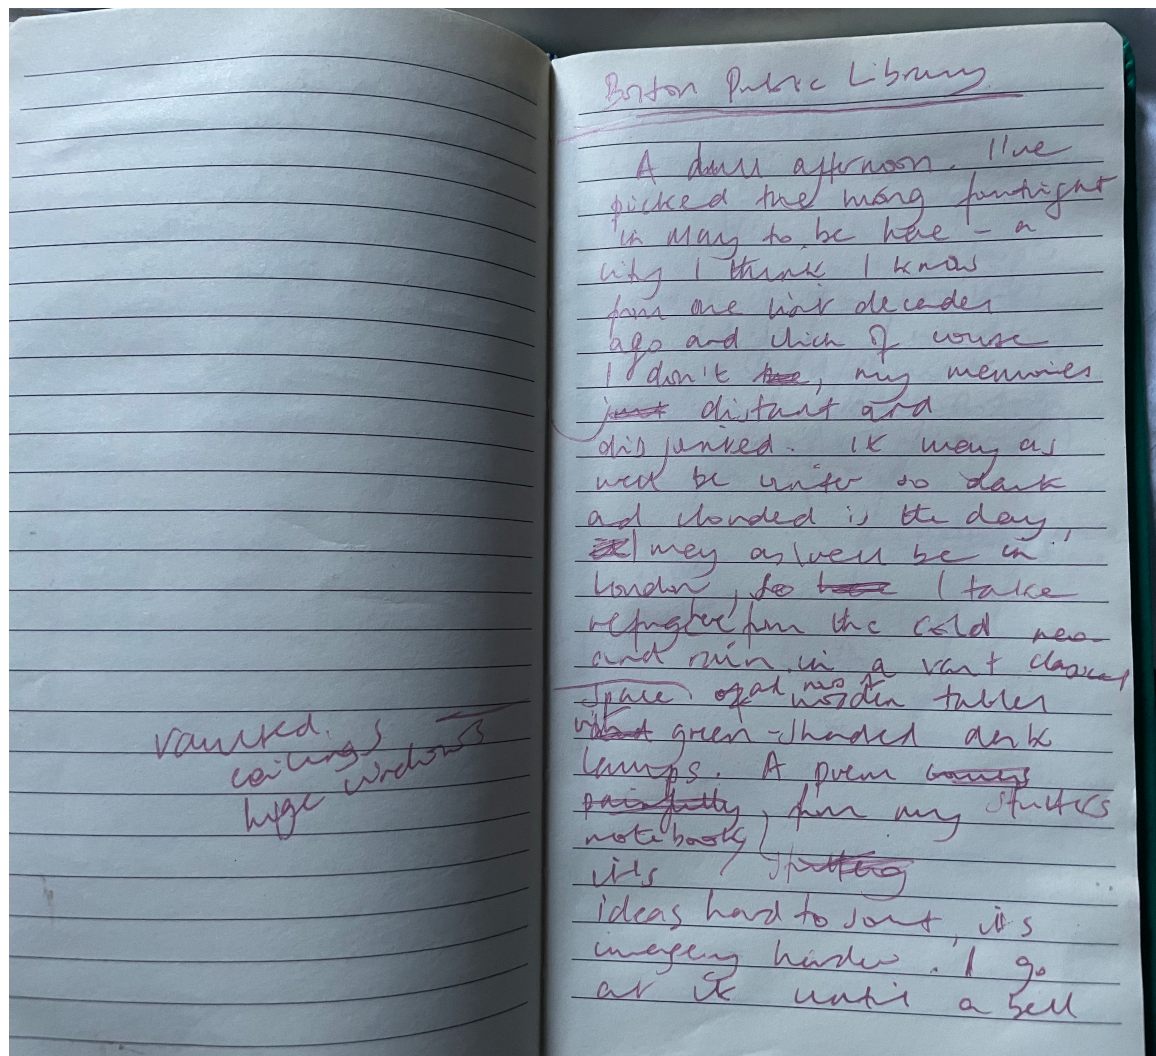 vaulted
ceilings
huge windows
Boston Public Library
A dull afternoon. I've
picked the wrong fortnight
in May to be here – a
city I think I know
from one visit decades
ago and which of course
I don't, my memories
just distant and
disjointed. It may as
well be winter so dark
and clouded is the day,
I may as well be in
London, so I take
refuge from the cold
and rain in a vast classical
space of wooden tables
with green-shaded desk
lamps. A poem comes
painfully, from my stutters
notebook
its sputtering
ideas hard to sort, its
imagery harder. I go
at it until a bell